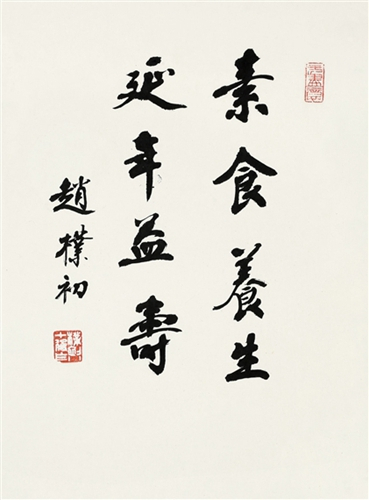 素食養生
延年益壽
趙樸初